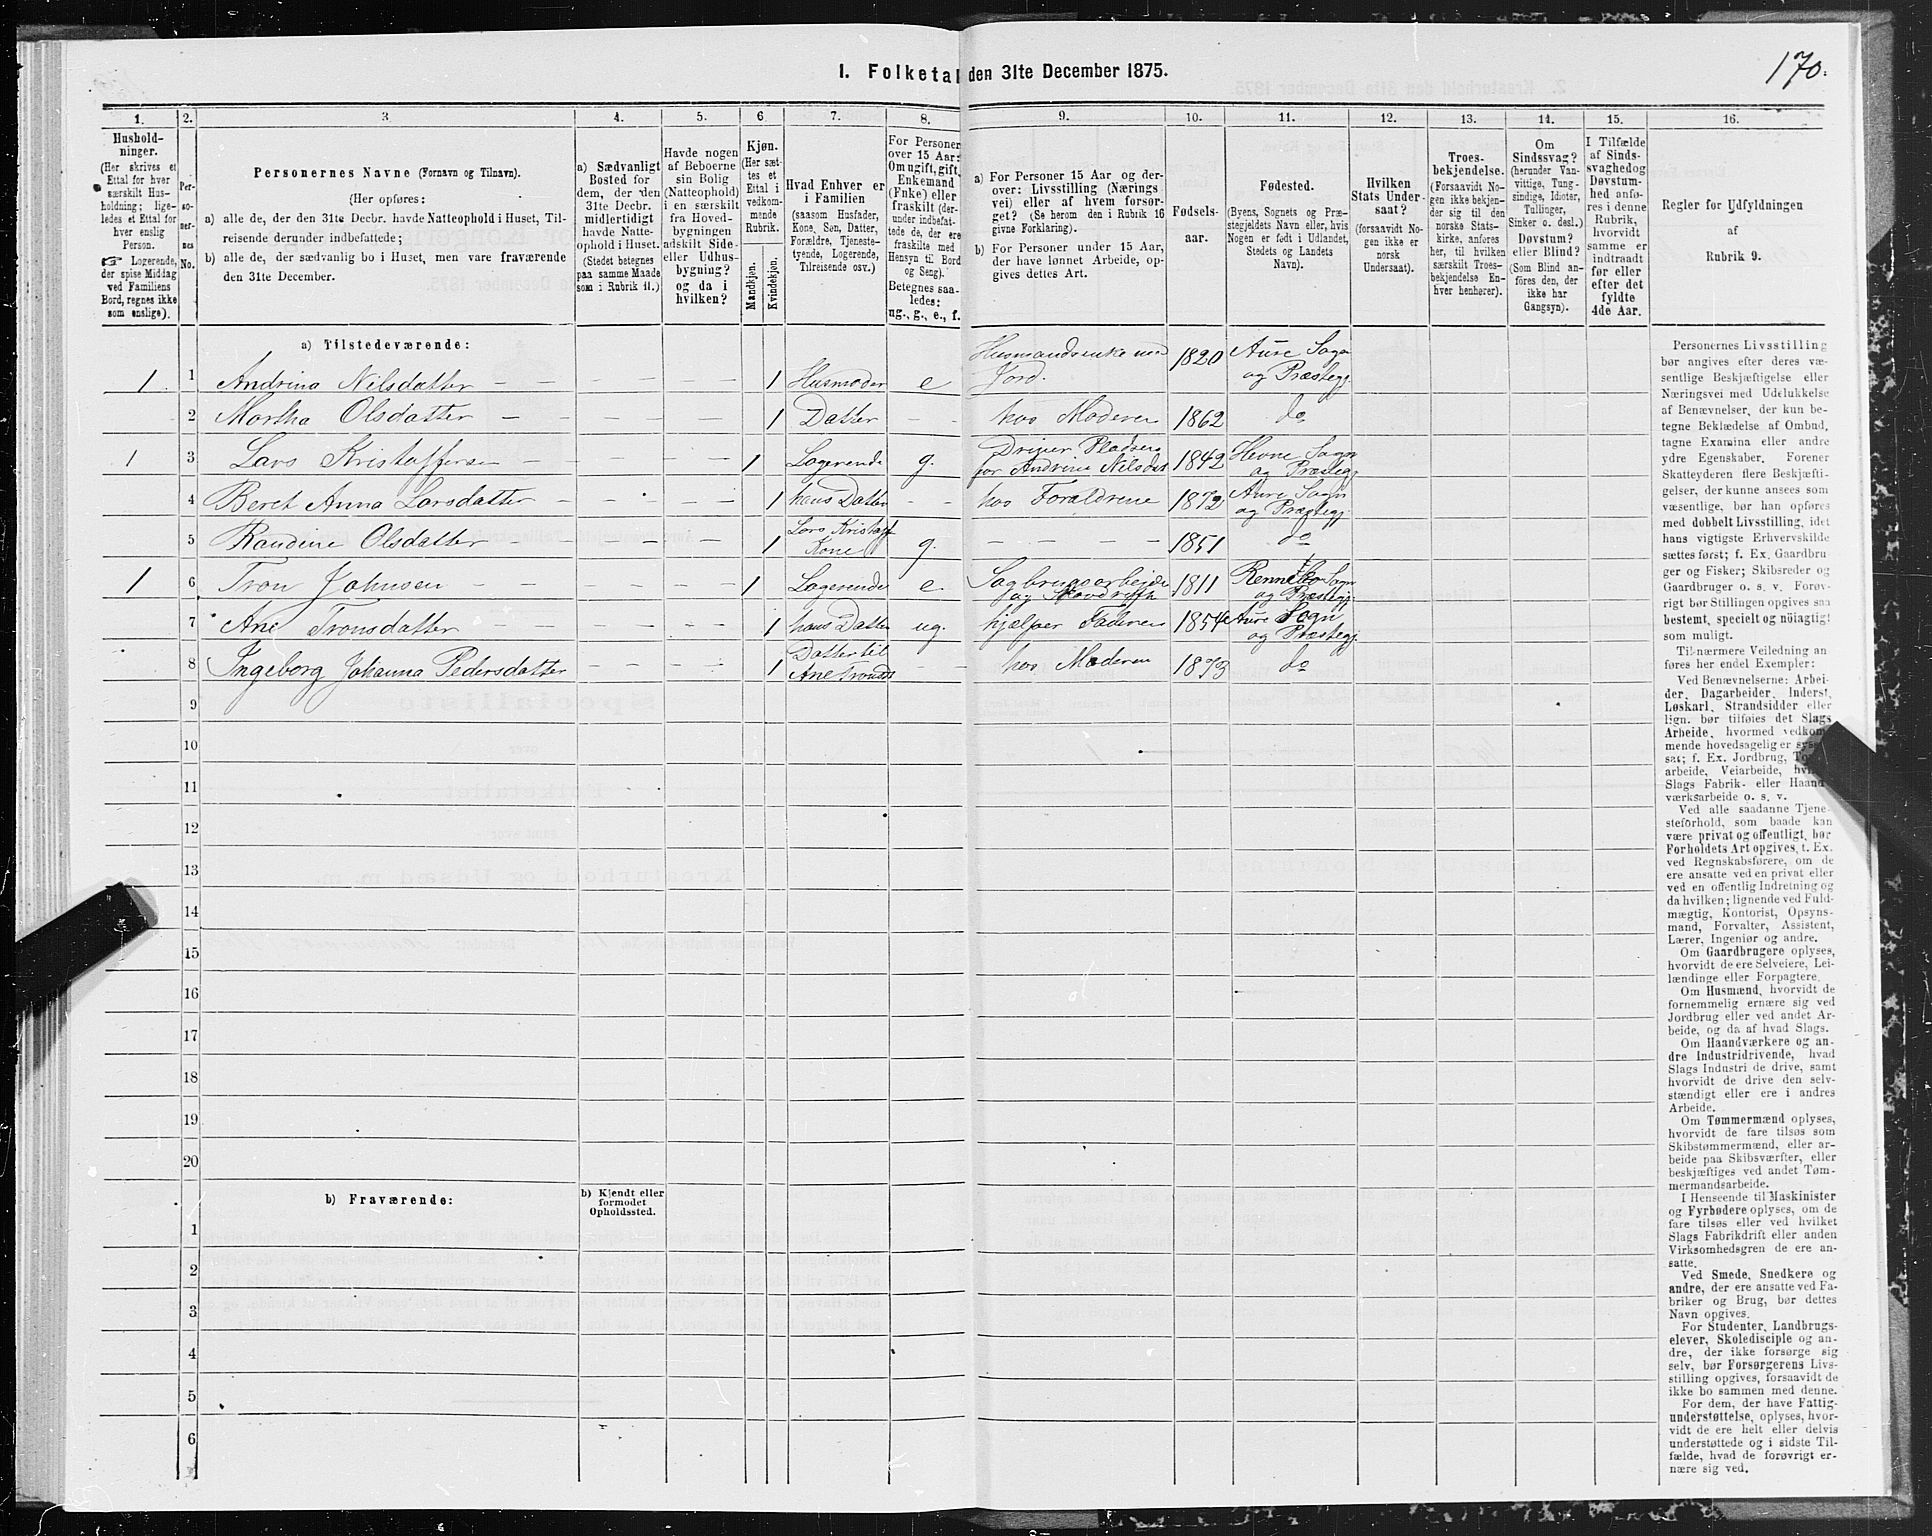 170.
1. Folketal den 31te December 1875.
1. 2. 3. 4. 5. 6. 7. 8. 9. 10. 11. 12. 13. 14. 15. 16.
Hushold-
ninger.
(Her skrives et
Ettal for hver
særskilt Hus-
holdning; lige-
ledes et Ettal for
hver enslig
Person.
☞ Logerende,
der spise Middag
ved Familiens
Bord, regnes ikke
som enslige).
Per-
so-
ner-
nes
No.
Personernes Navne (Fornavn og Tilnavn).
(Her opføres:
a) alle de, der den 31te Decbr. havde Natteophold i Huset, Til-
reisende derunder indbefattede;
b) alle de, der sædvanlig bo i Huset, men vare fraværende
den 31te December.
a) Sædvanligt
Bosted for
dem, der den
31te Decbr.
midlertidigt
havde Natte-
ophold i Huset.
(Stedet betegnes
paa samme Maade
som i Rubrik 11.)
Havde nogen
af Beboerne
sin Bolig
(Natteophold)
i en særskilt
fra Hoved-
bygningen
adskilt Side-
eller Udhus-
bygning?
og da i
hvilken?
Kjøn.
(Her sæt-
tes et
Ettal i
vedkom-
mende
Rubrik.
Mandkjøn.
Kvindekjøn.
Hvad Enhver er
i Familien
(saasom Husfader,
Kone, Søn, Datter,
Forældre, Tjeneste-
tyende, Logerende,
Tilreisende osv.)
For Personer
over 15 Aar:
Om ugift, gift,
Enkemand
(Enke) eller
fraskilt (der-
under indbefat-
tede de, der ere
fraskilte med
Hensyn til Bord
og Seng).
Betegnes saa-
ledes:
ug., g., e., f.
a) For Personer 15 Aar og der-
over: Livsstilling (Nærings
vei) eller af hvem forsør-
get? (Se herom den i Rubrik 16
givne Forklaring).
b) For Personer under 15 Aar,
der have lønnet Arbeide, op-
gives dettes Art.
Fødsels-
aar.
Fødested.
(Byens, Sognets og Præ-
stegjeldets Navn eller, hvis
Nogen er født i Udlandet,
Stedets og Landets
Navn).
Hvilken
Stats Under-
saat?
(forsaavidt No-
gen ikke er
norsk
Undersaat).
Troes-
bekjendelse.
(Forsaavidt No-
gen ikke bekjen-
der sig til den
norske Stats-
kirke, anføres
her, til hvilken
særskilt Troes-
bekjendelse En-
hver henhører).
Om
Sindssvag?
(herunder Van-
vittige, Tung-
sindige, Idioter,
Tullinger,
Sinker o. desl.)
Døvstum?
eller Blind?
(Som Blind an-
føres den, der
ikke har
Gangsyn).
I Tilfælde
af Sinds-
svaghed og
Døvstum-
hed anfø-
res i denne
Rubrik,
hvorvidt
samme er
indtraadt
før eller
efter det
fyldte
4de Aar.
Regler for Udfyldningen
af
Rubrik 9.
a) Tilstedeværende:
1 1 Andrina Nilsdatter — — 1 Husmoder e Husmandsenke med Jord. 1820 Aure Sogn og Præstegj.
2 Martha Olsdatter — — — 1 Datter — — hos Moderen 1862 do
1 3 Lars Kristoffersen — — — 1 Logerende g. Driver Pladsen for Andrine Nilsdat 1842 Hevne Sogn og Præstegj.
4 Beret Anna Larsdatter — — — 1 hans Datter — — hos Forældrene 1872 Aure Sogn og Præstegj.
5 Randine Olsdatter — — — 1 Lars Kristoff Kone g. — — — — 1851 do
1 6 Tron Johnsen — — — 1 Logerende e Sagbrugsarbeide og 1811 Rennebo Sogn og Præstegj.
7 Ane Tronsdatter — — — 1 hans Datter ug. hjælper Faderen 1854 Aure Sogn og Præstegj.
8 Ingeborg Johanna Pedersdatter — — — 1 Datter til Ane Tronsd — — hos Moderen 1873 do
9
10
11
12
13
14
15
16
17
18
19
20
b) Fraværende:
b) Kjendt eller
formodet
Opholdssted.
1
2
3
4
5
6
Personernes Livsstilling
bør angives efter deres væ-
sentlige Beskjæftigelse eller
Næringsvei med Udelukkelse
af Benævnelser, der kun be-
tegne Beklædelse af Ombud,
tagne Examina eller andre
ydre Egenskaber. Forener
Skatteyderen flere Beskjæfti-
gelser, der kunne ansees som
væsentlige, bør han opføres
med dobbelt Livsstilling, idet
hans vigtigste Erhvervskilde
sættes først; f. Ex. Gaardbru-
ger og Fisker; Skibsreder og
Gaardbruger o. s. v. Forøv-
rigt bør Stillingen opgives saa
bestemt, specielt og nöiagtigt
som muligt.
Til nærmere Veiledning an-
føres her endel Exempler:
Ved Benævnelserne: Arbei-
der, Dagarbeider, Inderst,
Løskarl, Strandsidder eller
lign. bør tilføies det Slags
Arbeide, hvormed vedkom-
mende hovedsagelig er syssel-
sat; f. Ex. Jordbrug, To
arbeide, Veiarbeide, hvi
Slags Fabrik- eller Haand-
værksarbeide o. s. v.
Ved alle saadanne Tjene-
steforhold, som baade kan
være privat og offentligt, bør
Forholdets Art opgives, t. Ex.
ved Regnskabsførere, om de
ere ansatte ved en privat eller
ved en offentlig Indretning og
da hvilken; lignende ved Fuld-
mægtig, Kontorist, Opsyns-
mand, Forvalter, Assistent,
Lærer, Ingeniør og andre.
Om Gaardbrugere oplyses,
hvorvidt de ere Selveiere, Lei-
lændinge eller Forpagtere.
Om Husmænd, hvorvidt de
fornemmelig ernære sig ved
Jordbrug eller ved andet Ar-
beide, og da af hvad Slags.
Om Haandværkere og an-
dre Industridrivende, hvad
Slags Industri de drive, samt
hvorvidt de drive den selv-
stændigt eller ere i andres
Arbeide.
Om Tømmermænd oplyses,
hvorvidt de fare tilsøs som
Skibstømmermænd, eller ar-
beide paa Skibsværfter, eller
beskjæftiges ved andet Tøm-
mermandsarbeide.
I Henseende til Maskinister
og Fyrbødere oplyses, om de
fare tilsøs eller ved hvilket
Slags Fabrikdrift eller anden
Virksomhedsgren de ere an-
satte.
Ved Smede, Snedkere og
andre, der ere ansatte ved Fa-
briker og Brug, bør dettes
Navn opgives.
For Studenter, Landbrugs-
elever, Skoledisciple og an-
dre, der ikke forsørge sig
selv, bør Forsørgerens Livs-
stilling opgives, forsaavidt de
ikke bo sammen med denne.
For dem, der have Fattig-
understøttelse, oplyses, hvor-
vidt de ere helt eller delvis
understøttede og i sidste Til-
fælde, hvad de forøvrigt er-
nære sig ved.